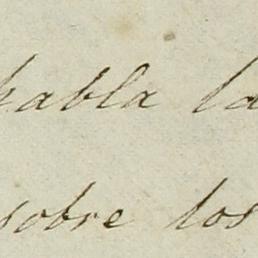 habla la
sobre los